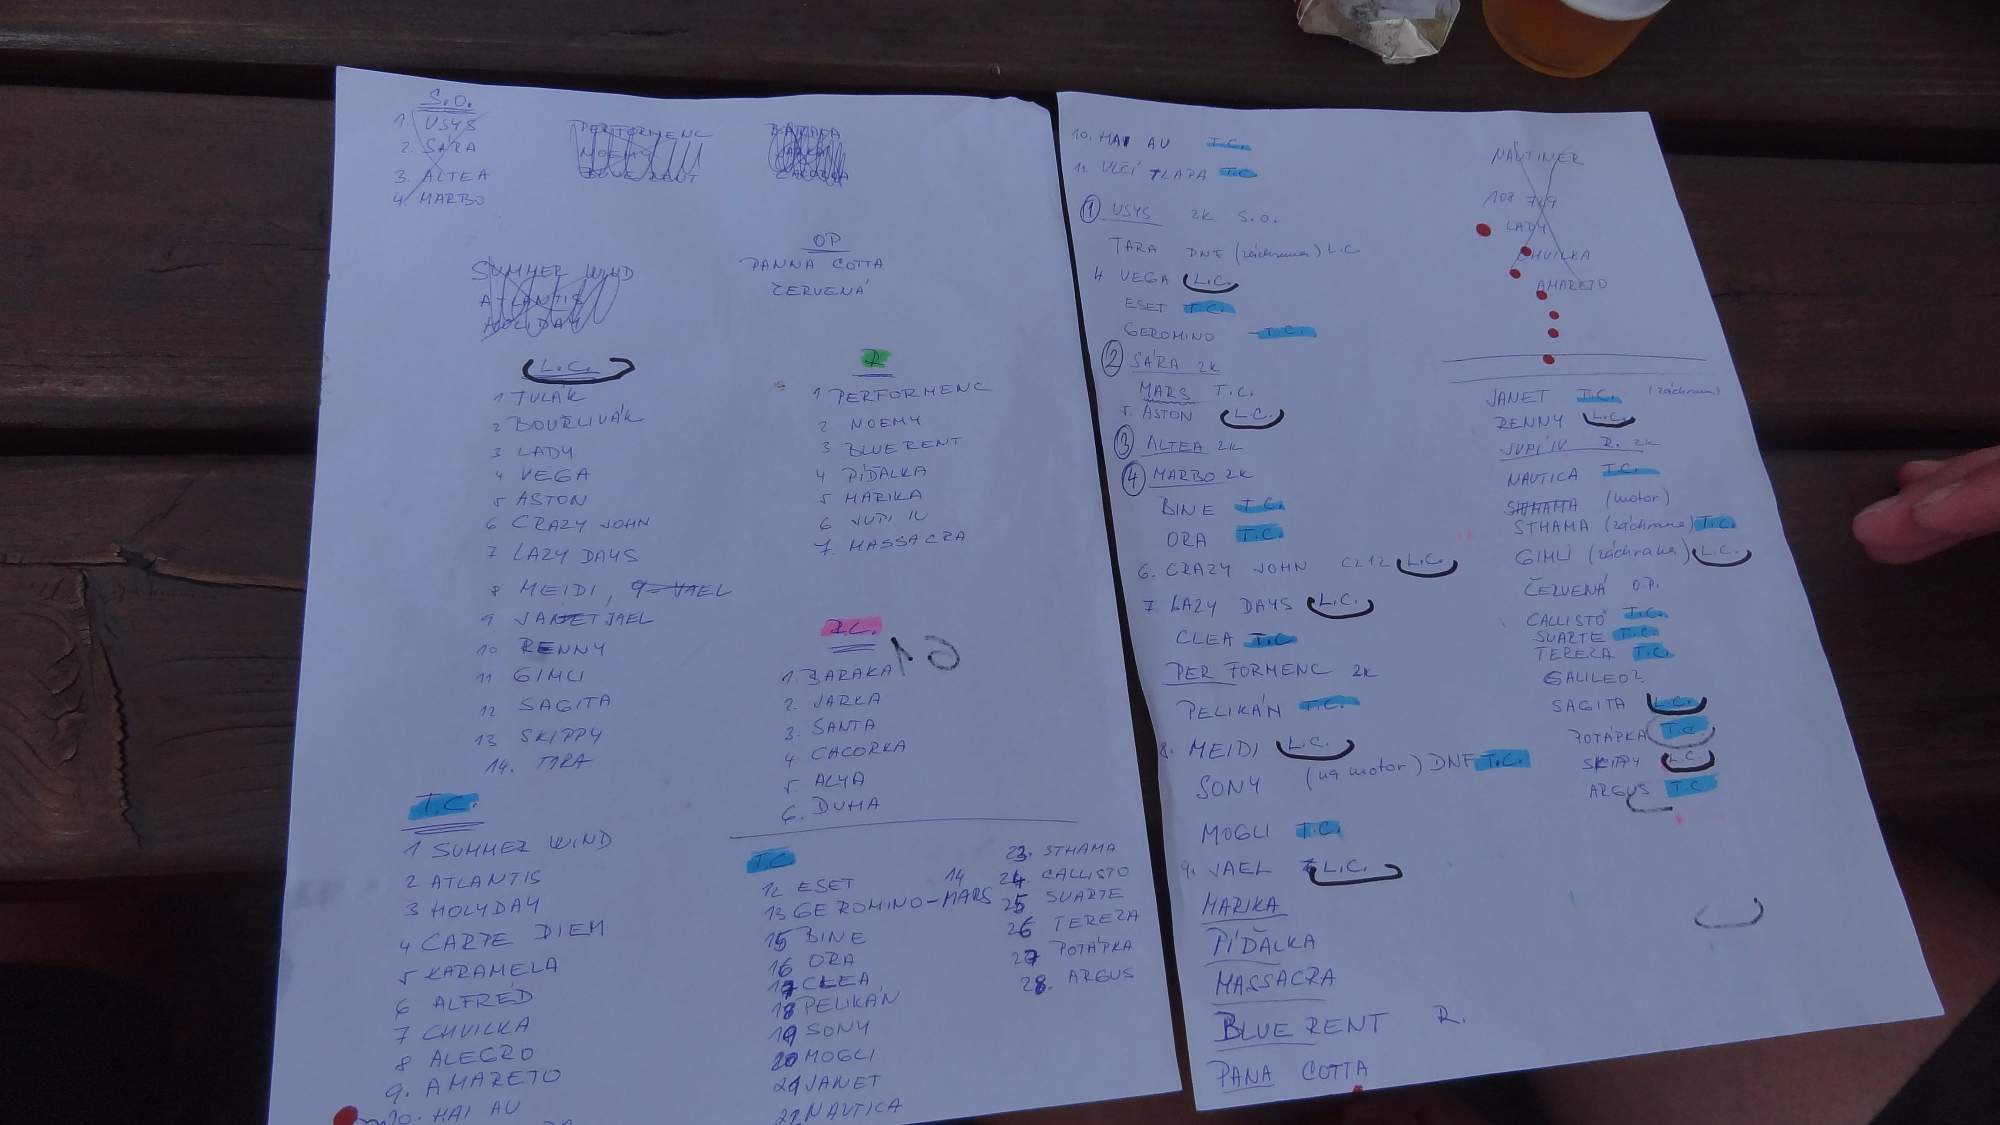 S.O.
1. USYS
2. SÁRA
3 ALTEA
4. MARBO
PERFORMENC
NOEMY
BLUE RENT
BARAKA
JARKA
CACORKA
SUMMER WIND
ATLANTIS
HOLIDAY
OP
PANNA COTTA
ČERVENÁ
L.C.
1 TULÁK
2 BOUŘLIVÁK
3 LADY
4 VEGA
5 ASTON
6 CRAZY JOHN
7 LAZY DAYS
8 MEIDI, 9 JAEL
9 JANET JAEL
10 RENNY
11 GIMLI
12 SAGITA
13 SKIPPY
14. TARA
R
1 PERFORMENC
2 NOEMY
3 BLUE RENT
4 PÍĎALKA
5 MARIKA
6 JUPI IV
7. MASSACRA
R.C.
1 BARAKA
2. JARKA
3. SANTA
4 CACORKA
5 ALYA
6. DUHA
T.C.
1 SUMMER WIND
2 ATLANTIS
3 HOLYDAY
4 CARPE DIEM
5 KARAMELA
6 ALFRÉD
7 CHVILKA
8 ALEGRO
9. AMARETO
10. HAI AU
T.C
12 ESET
13 GEROMINO - MARS 14
15 BINE
16 ORA
17 CLEA
18 PELIKÁN
19 SONY
20 MOGLI
21 JANET
22 NAUTICA
23. STHAMA
24 CALLISTO
25 SUARTE
26 TEREZA
27 POTÁPKA
28. ARGUS
10. HAI AU T.C.
11. VLČÍ TLAPA T.C
1 USYS 2K S.O.
TARA DNF (záchrana) L.C
4 VEGA L.C.
ESET T.C.
GEROMINO - T.C.
2 SÁRA 2K
MARS T.C.
5. ASTON L.C.
3 ALTEA 2K
4 MARBO 2K
BINE T.C.
ORA T.C.
6. CRAZY JOHN CZ12 L.C.
7 LAZY DAYS L.C.
CLEA T.C
PERFORMENC 2K
PELIKÁN T.C.
8. MEIDI L.C.
SONY (na motor) DNF T.C.
MOGLI T.C.
9. JAEL L.C.
MARIKA
PÍĎALKA
MASSACRA
BLUE RENT R.
PANA COTTA
NAUTINER
LADY
CHVILKA
AMARETO
JANET T.C. (záchrana)
RENNY L.C.
JUPI IV R. 2K
NAUTICA T.C.
STHAMA (motor)
STHAMA (záchrana) T.C.
GIMLI (záchrana) L.C.
ČERVENÁ OP.
CALLISTO T.C.
SUARTE T.C.
TEREZA T.C.
GALILEO?
SAGITA L.C.
POTÁPKA T.C.
SKIPPY L.C.
ARGUS T.C